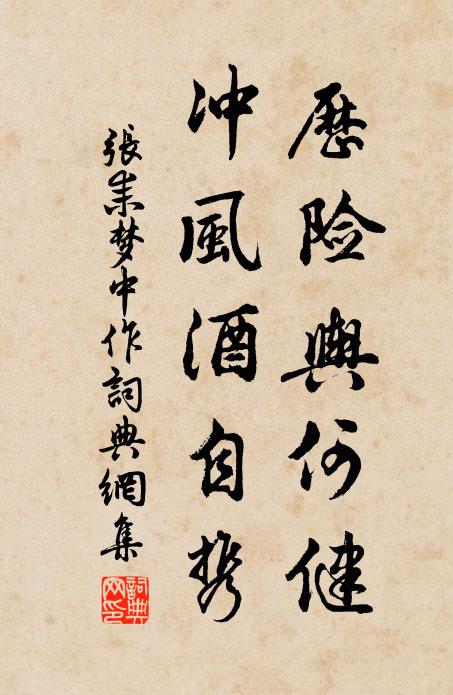 歷险輿何健
冲風酒自携
張耒梦中作詞典網集
詞典网印